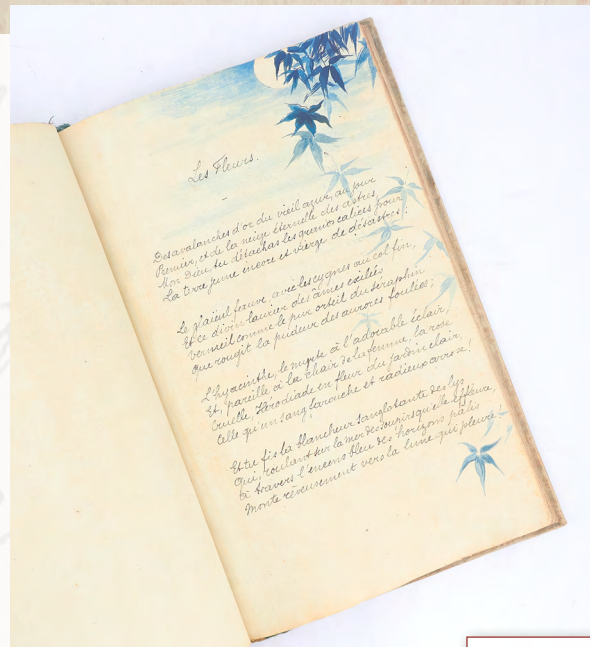 Les Fleurs.
Des avalanches d'or du vieil azur, au jour
Premier, et de la neige éternelle des astres,
Mon Dieu tu détachas les grands calices pour
La terre jeune encore et vierge de désastres;
Le glaïeul fauve, avec les cygnes au col fin,
Et ce divin laurier des âmes exilées
Vermeil comme le pur orteil du séraphin
Que rougit la pudeur des aurores foulées;
L'hyacinthe, le myrte à l'adorable éclair,
Et, pareille à la chair de la femme, la rose
Cruelle, Hérodiade en fleur du jardin clair,
Celle qu'un sang farouche et radieux arrose!
Et tu fis la blancheur sanglotante des lys
Qui, roulant sur la mer des soupirs qu'elle effleure,
à travers l'encens bleu des horizons pâlis
Monte rêveusement vers la lune qui pleure!